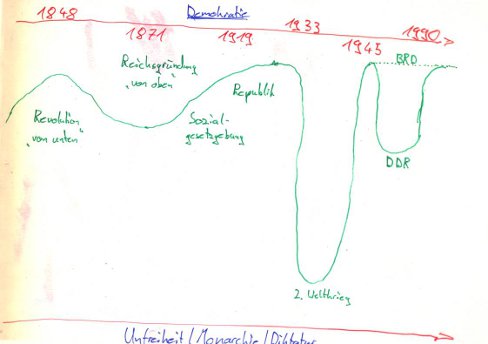 Demokratie
1848 1871 1919 1933 1945 1990
Reichsgründung
"von oben"
BRD
Republik
Revolution
"von unten"
Sozial-
gesetzgebung
DDR
2. Weltkrieg
Unfreiheit / Monarchie / Diktatur